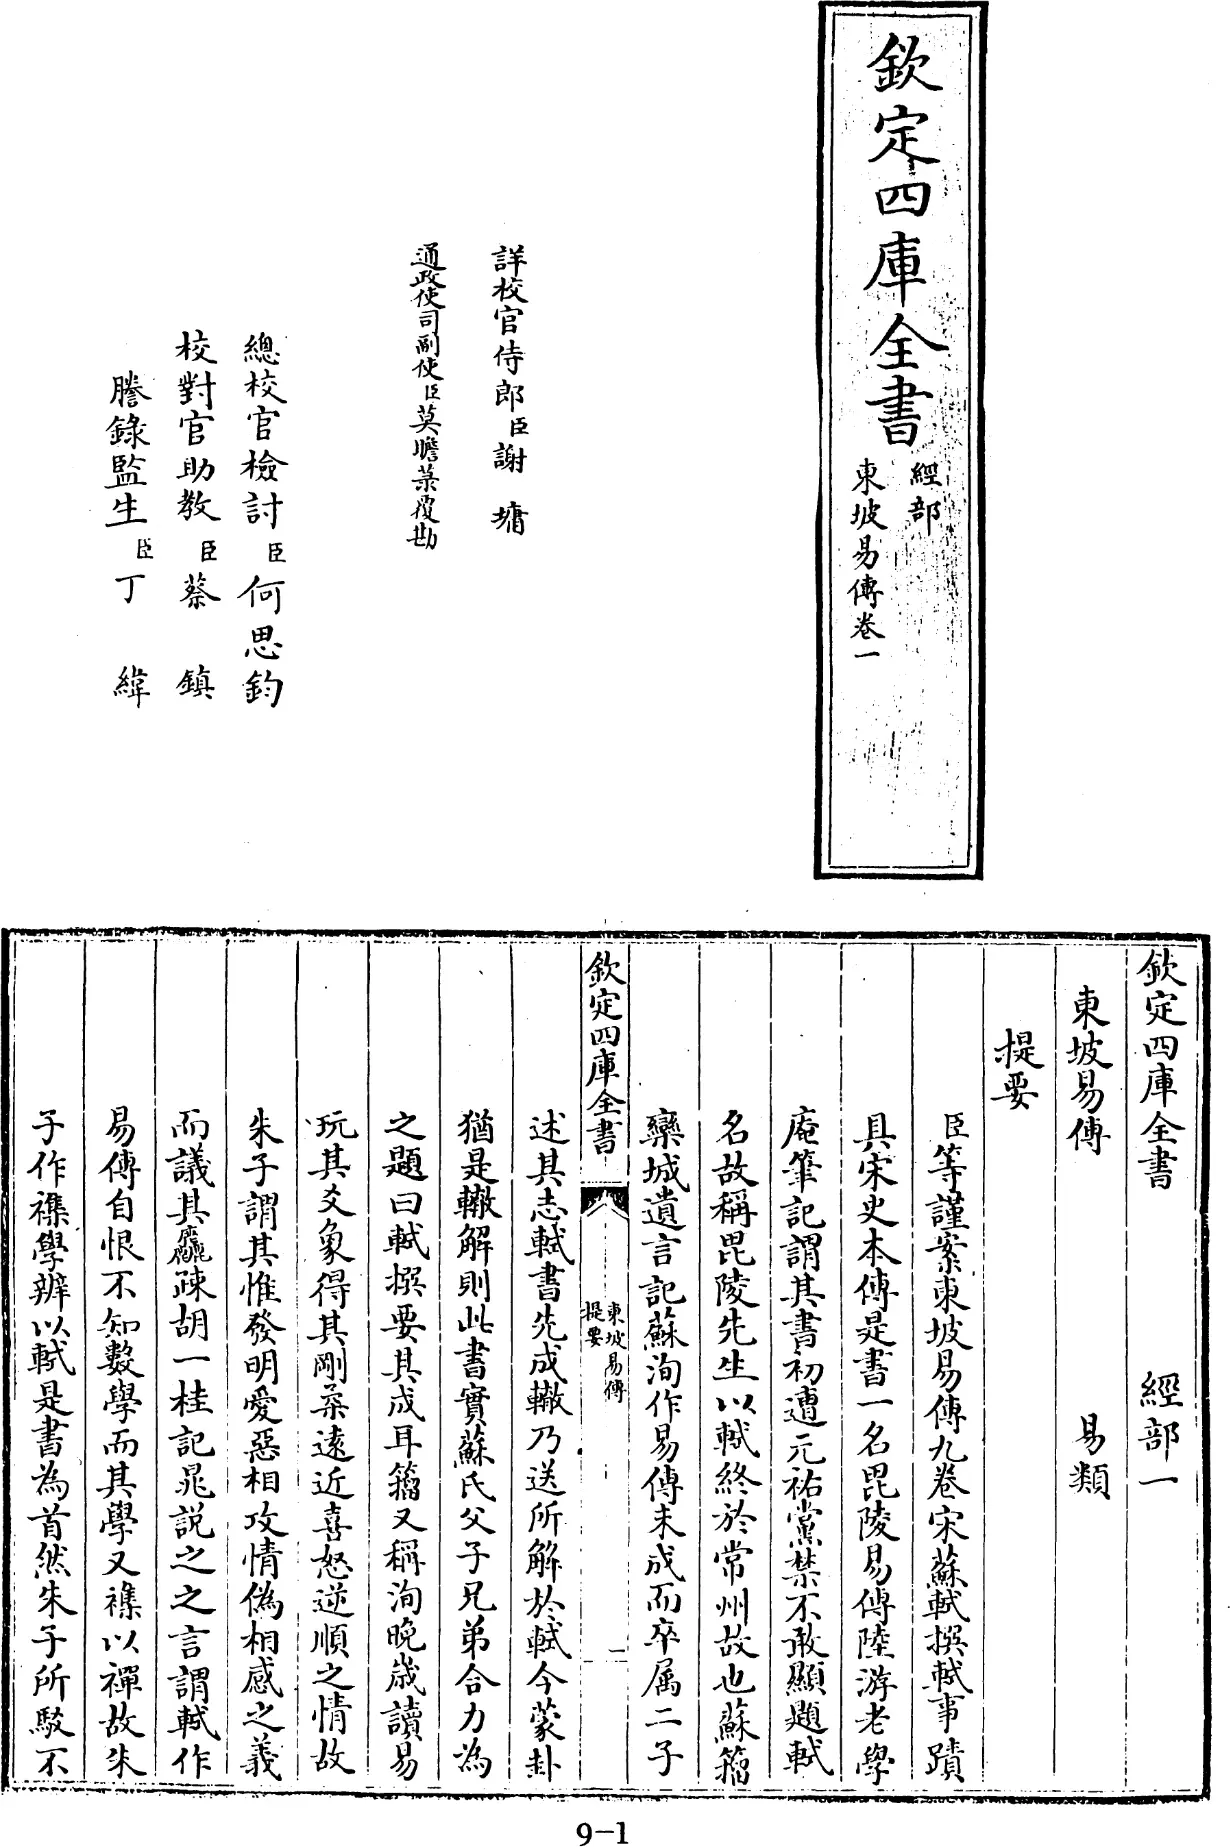 欽定四庫全書
經部
東坡易傳卷一
詳校官侍郎臣謝墉
通政使司副使臣莫瞻菉覆勘
總校官檢討臣何思鈞
校對官助教臣蔡鎮
謄錄監生臣丁緯
欽定四庫全書 經部一
東坡易傳 易類
提要
臣等謹案東坡易傳九卷宋蘇軾撰軾事蹟
具宋史本傳是書一名毘陵易傳陸游老學
庵筆記謂其書初遭元祐黨禁不敢顯題軾
名故稱毘陵先生以軾終於常州故也蘇籀
欒城遺言記蘇洵作易傳未成而卒属二子
欽定四庫全書
東坡易傳
提要
一
述其志軾書先成轍乃送所解於軾今蒙卦
猶是轍解則此書實蘇氏父子兄弟合力為
之題曰軾撰要其成耳籀又稱洵晚歲讀易
玩其爻象得其剛柔遠近喜怒逆順之情故
朱子謂其惟發明愛惡相攻情偽相感之義
而議其麤疎胡一桂記晁説之之言謂軾作
易傳自恨不知數學而其學又襍以禪故朱
子作襍學辨以軾是書為首然朱子所駁不
9-1